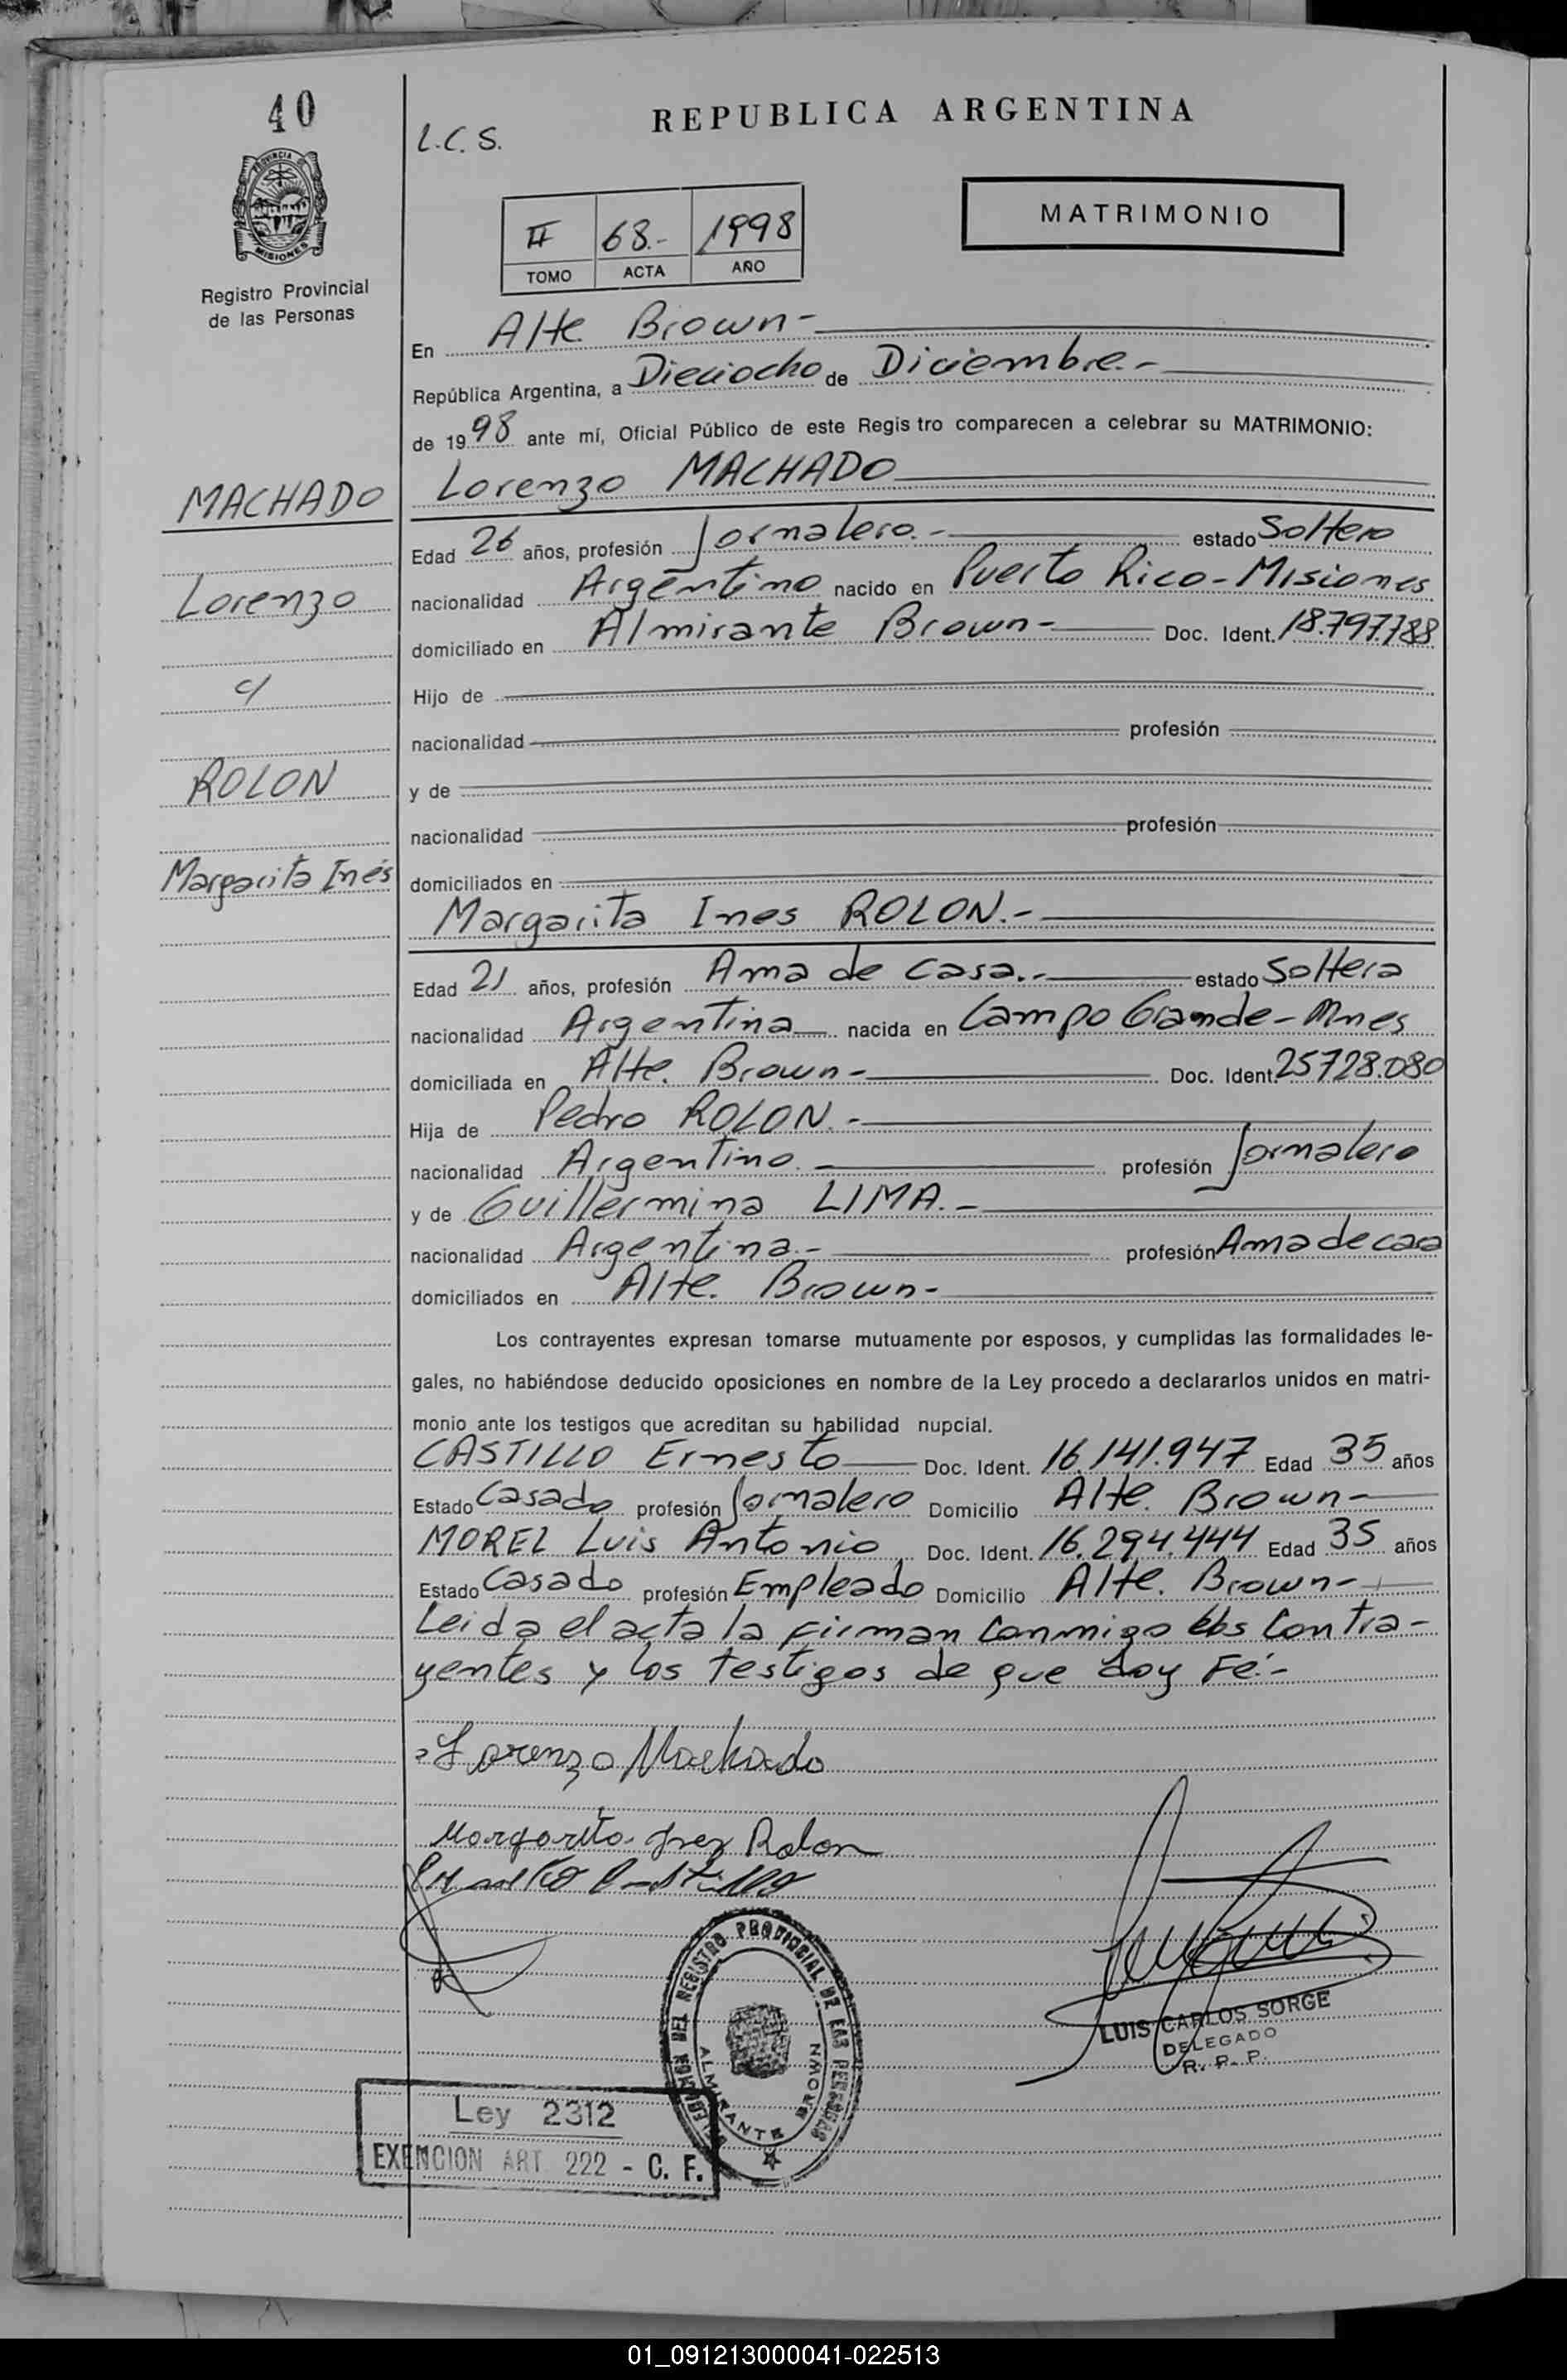 40
PROVINCIA DE
MISIONES
Registro Provincial
de las Personas
L.C.S.
REPUBLICA ARGENTINA
II 68.- 1998
TOMO ACTA AÑO
MATRIMONIO
En Alte. Brown-
República Argentina, a Dieciocho de Diciembre.-
de 1998 ante mí, Oficial Público de este Regis tro comparecen a celebrar su MATRIMONIO:
MACHADO
Lorenzo
c/
ROLON
Margarita Inés
Lorenzo MACHADO
Edad 26 años, profesión Jornalero.- estado Soltero
nacionalidad Argentino nacido en Puerto Rico-Misiones
domiciliado en Almirante Brown- Doc. Ident. 18.797.788
Hijo de
nacionalidad profesión
y de
nacionalidad profesión
domiciliados en
Margarita Ines ROLON.-
Edad 21 años, profesión Ama de casa.- estado Soltera
nacionalidad Argentina nacida en Campo Grande-Mnes
domiciliada en Alte. Brown- Doc. Ident. 25728.080
Hija de Pedro ROLON.-
nacionalidad Argentino.- profesión Jornalero
y de Guillermina LIMA.-
nacionalidad Argentina.- profesión Ama de casa
domiciliados en Alte. Brown-
Los contrayentes expresan tomarse mutuamente por esposos, y cumplidas las formalidades le-
gales, no habiéndose deducido oposiciones en nombre de la Ley procedo a declararlos unidos en matri-
monio ante los testigos que acreditan su habilidad nupcial.
CASTILLO Ernesto Doc. Ident. 16.141.947 Edad 35 años
Estado Casado profesión Jornalero Domicilio Alte. Brown-
MOREL Luis Antonio Doc. Ident. 16.294.444 Edad 35 años
Estado Casado profesión Empleado Domicilio Alte. Brown-
Leida el acta la firman conmigo los Contra-
yentes y los testigos de que doy Fé.-
Lorenzo Machado
Margarita Inez Rolon
Ernesto Castillo
LUIS CARLOS SORGE
DELEGADO
R. P. P.
DELEGACION DEL REGISTRO PROVINCIAL DE LAS PERSONAS
ALMIRANTE BROWN
Ley 2312
EXENCION ART. 222 - C. F.
01_091213000041-022513